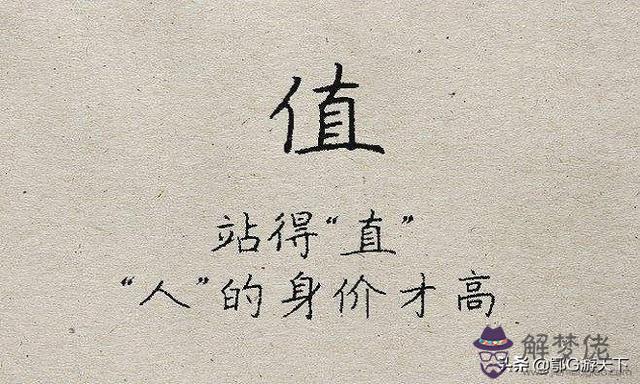 值
站得“直”
“人”的身价才高
解梦佬
头条@郭G游天下